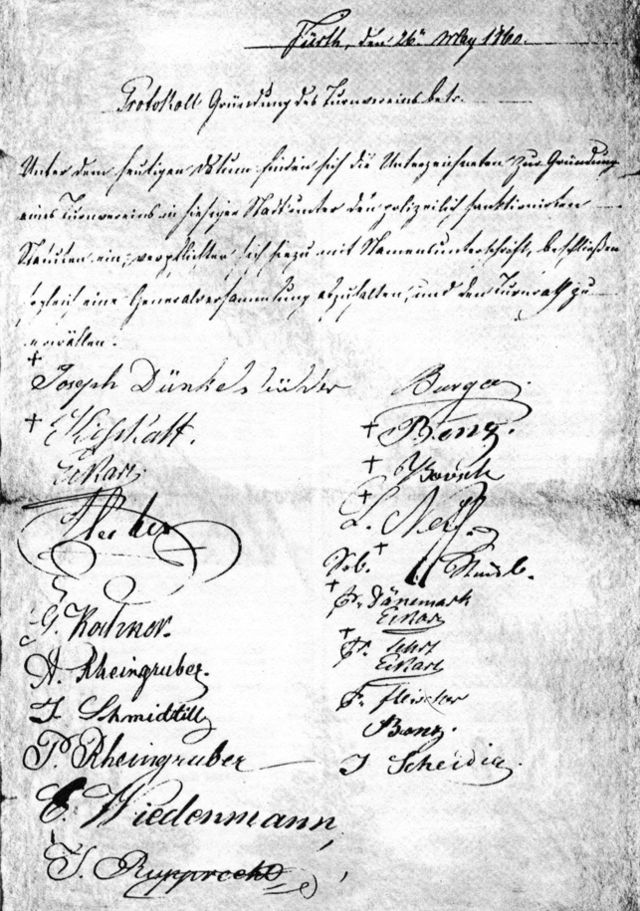 Fürth, den 26ⁿ May 1860.
Protokoll Gründung des Turnvereins betr.
Unter dem heutigen Datum finden sich die Unterzeichneten zur Gründung
eines Turnvereins in hiesiger Stadt unter den polizeilich sanktionirten
Statuten ein; verpflichten sich hiezu mit Namensunterschrift, beschließen
sogleich eine Generalversammlung abzuhalten, und den Turnrath zu
erwählen.
Joseph Dünkelsbühler
Eckart
G. Kohner.
A. Rheingruber.
J. Schmidtill
P. Rheingruber
E. Wiedenmann,
J. Rupprecht
Burger
Benz.
Boesch
L. Neff.
Seb. Staudt.
Fr. Dänemark
Eckart
Fr.
Eckart
Fr. Fleischer
Benz.
J Scheidig